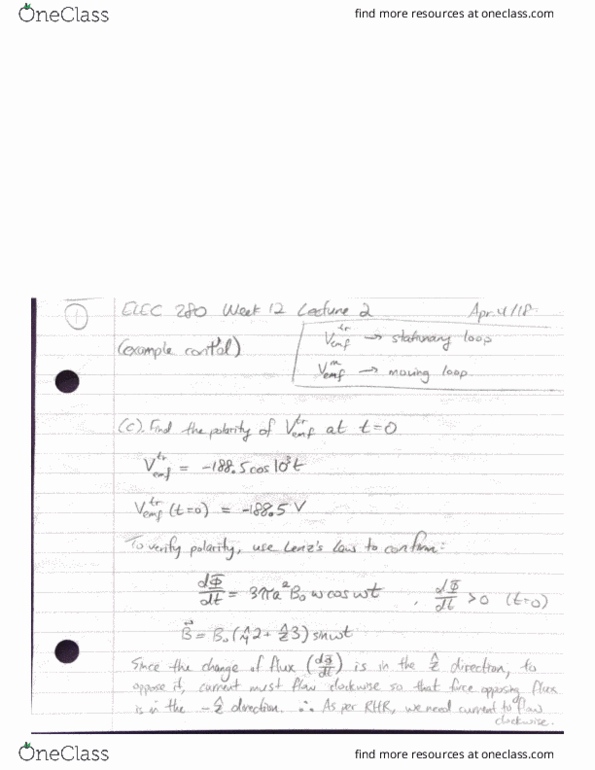 OneClass
find more resources at oneclass.com
1
ELEC 280 Week 12 Lecture 2
Apr.4/18
(example cont'd)
V_emf^tr → stationary loop
V_emf^m → moving loop
(c). Find the polarity of V_emf^tr at t=0
V_emf^tr = -188.5cos10³t
V_emf^tr (t=0) = -188.5 V
To verify polarity, use Lenz's Law to confirm:
dΦ/dt = 3πa²B₀ w cos wt , dΦ/dt > 0 (t=0)
B⃗ = B₀(ŷ2 + ẑ3) sinwt
Since the change of flux (dΦ/dt) is in the ẑ direction, to
oppose it, current must flow clockwise so that force opposing flux
is in the -ẑ direction. ∴ As per RHR, we need current to flow
clockwise.
OneClass
find more resources at oneclass.com